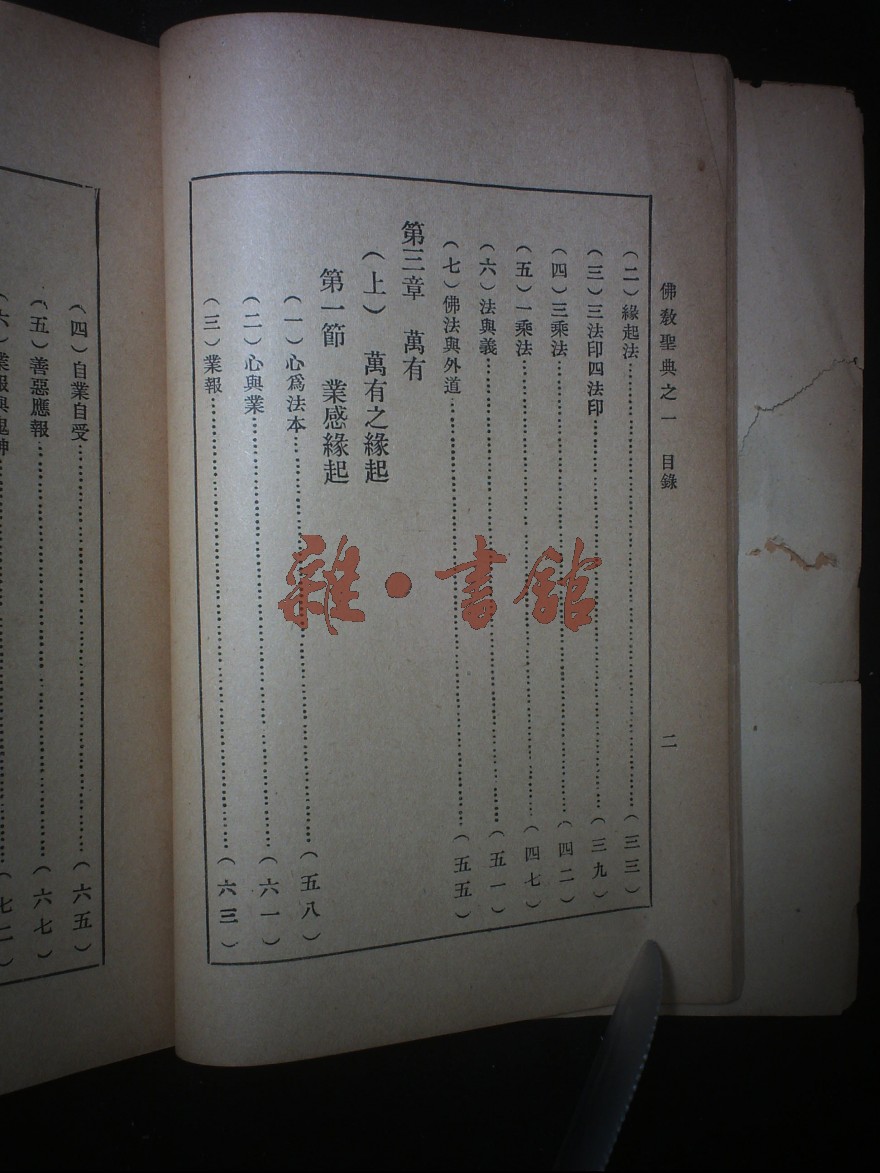 佛教聖典之一　目錄　二
（二）緣起法……（三三）
（三）三法印四法印……（三九）
（四）三乘法……（四二）
（五）一乘法……（四七）
（六）法與義……（五一）
（七）佛法與外道……（五五）
第三章　萬有
（上）　萬有之緣起
第一節　業感緣起
（一）心爲法本……（五八）
（二）心與業……（六一）
（三）業報……（六三）
（四）自業自受……（六五）
（五）善惡應報……（六七）
（六）業報與鬼神……（七二）
雜・書館